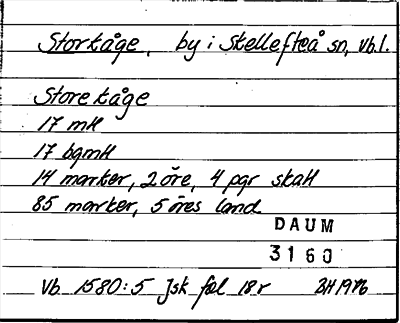 Storkåge, by i Skellefteå sn, Vb.l.
Store kåge
17 mH
17 bgmH
14 marker, 2 öre, 4 pgr skatt
85 marker, 5 öres land
DAUM
3160
Vb 1580:5 Jsk fol 18r BH 1976